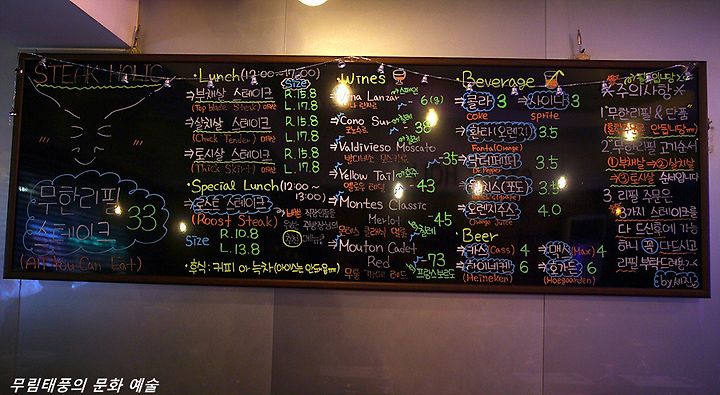 STEAK HOLIC
무한리필
스테이크
33
(All You Can Eat)
•Lunch(12:00~17:00)
Size
→부채살 스테이크 R.15.8
(Top blade Steak) L.17.8
→살치살 스테이크 R.15.8
(Chuck Tender) L.17.8
→토시살 스테이크 R.15.8
(Thick Skirt) L.17.8
•Special Lunch(12:00~
13:00)
→로스트 스테이크
(Roast Steak)
Size R.10.8
L.13.8
•후식: 커피 or 녹차
•Wines
Lanzar 6(g)
→Cono Sur 38
코노수르
→Valdivieso Moscato 35
→Yellow Tail 43
옐로우 테일
→Montes Classic
Merlot 45
→Mouton Cadet
Red 73
무똥 까데 레드
•Beverage
→콜라 3 →사이다 3
coke sprite
→환타(오렌지) 3.5
Fanta(Orange)
→닥터페퍼 3.5
Dr. Pepper
→웰치스(포도) 3.5
→오렌지주스 4.0
Orange Juice
•Beer
→카스(Cass) 4 →맥스(Max) 4
→하이네켄 6 →호가든 6
(Heineken) (Hoegaarden)
※주의사항※
1.무한리필 & 단품
2.무한리필 고기순서
①부채살→②살치살
→③토시살 순서입니다
3.리필 주문은
3가지 스테이크를
다 드신후에 가능
하니 꼭 다드시고
리필 부탁드려용
by세진
무림태풍의 문화 예술